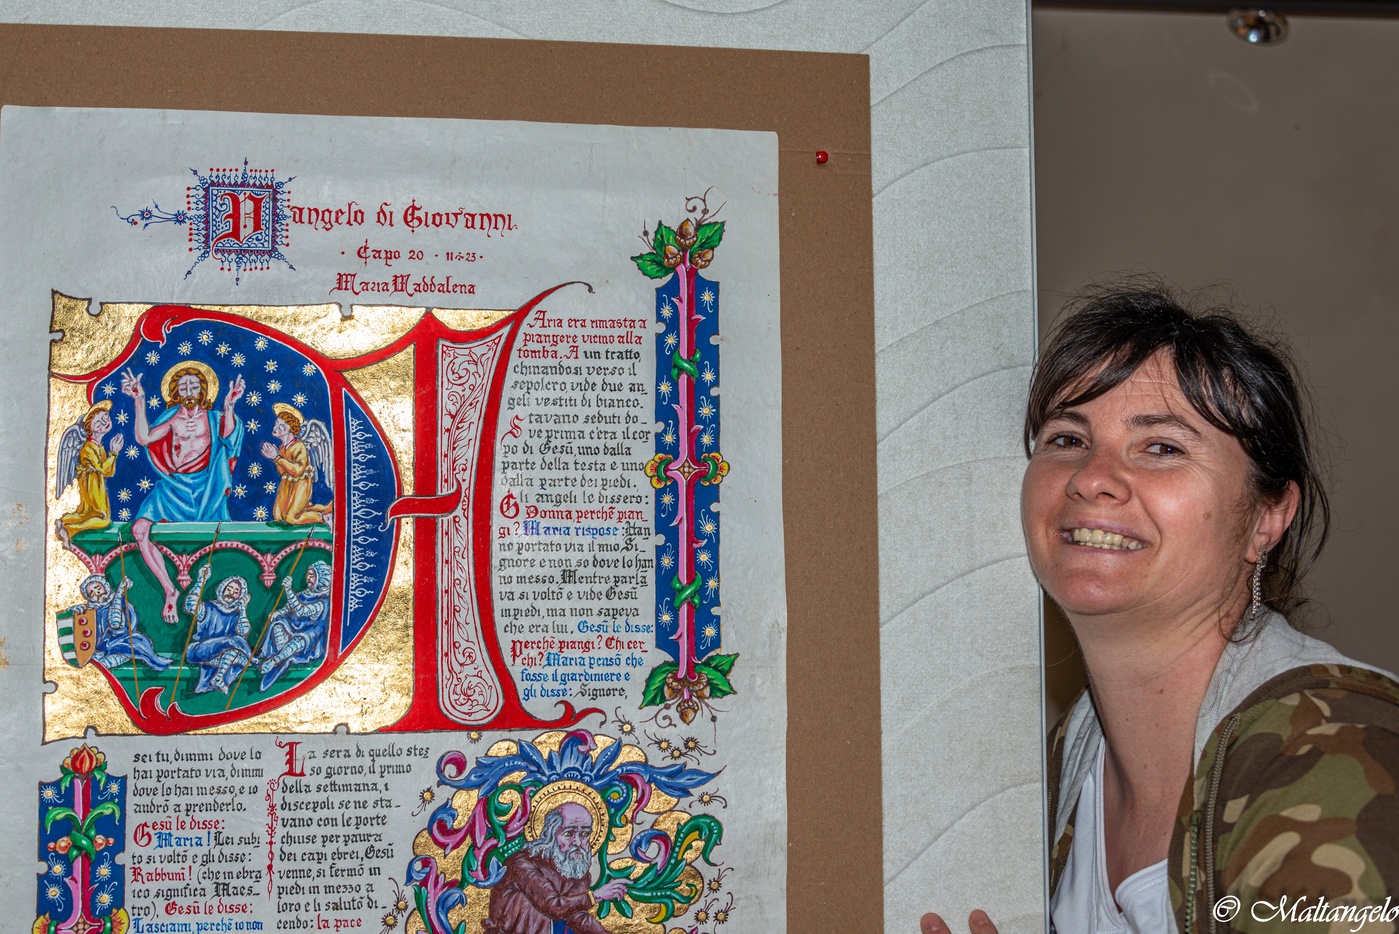 Vangelo di Giovanni.
· Capo 20 · 11÷23 ·
Maria Maddalena
Aria era rimasta a
piangere vicino alla
tomba. A un tratto,
chinandosi verso il
sepolcro, vide due an_
geli vestiti di bianco.
Stavano seduti do_
ve prima c'era il cor
po di Gesù, uno dalla
parte della testa e uno
dalla parte dei piedi.
Gli angeli le dissero:
Donna perchè pian_
gi? Maria rispose: Han
no portato via il mio Si_
gnore e non so dove lo han
no messo. Mentre parla
va si voltò e vide Gesù
in piedi, ma non sapeva
che era lui. Gesù le disse:
perchè piangi? Chi cer_
chi? Maria pensò che
fosse il giardiniere e
gli disse: Signore,
sei tu, dimmi dove lo
hai portato via, dimmi
dove lo hai messo, e io
andrò a prenderlo.
Gesù le disse:
Maria! Lei subi
to si voltò e gli disse:
Rabbunì! (che in ebra
ico significa Maes_
tro), Gesù le disse:
Lasciami, perchè io non
La sera di quello stes
so giorno, il primo
della settimana, i
discepoli se ne sta_
vano con le porte
chiuse per paura
dei capi ebrei, Gesù
venne, si fermò in
piedi in mezzo a
loro e li salutò di_
cendo: la pace
© Maltangelo